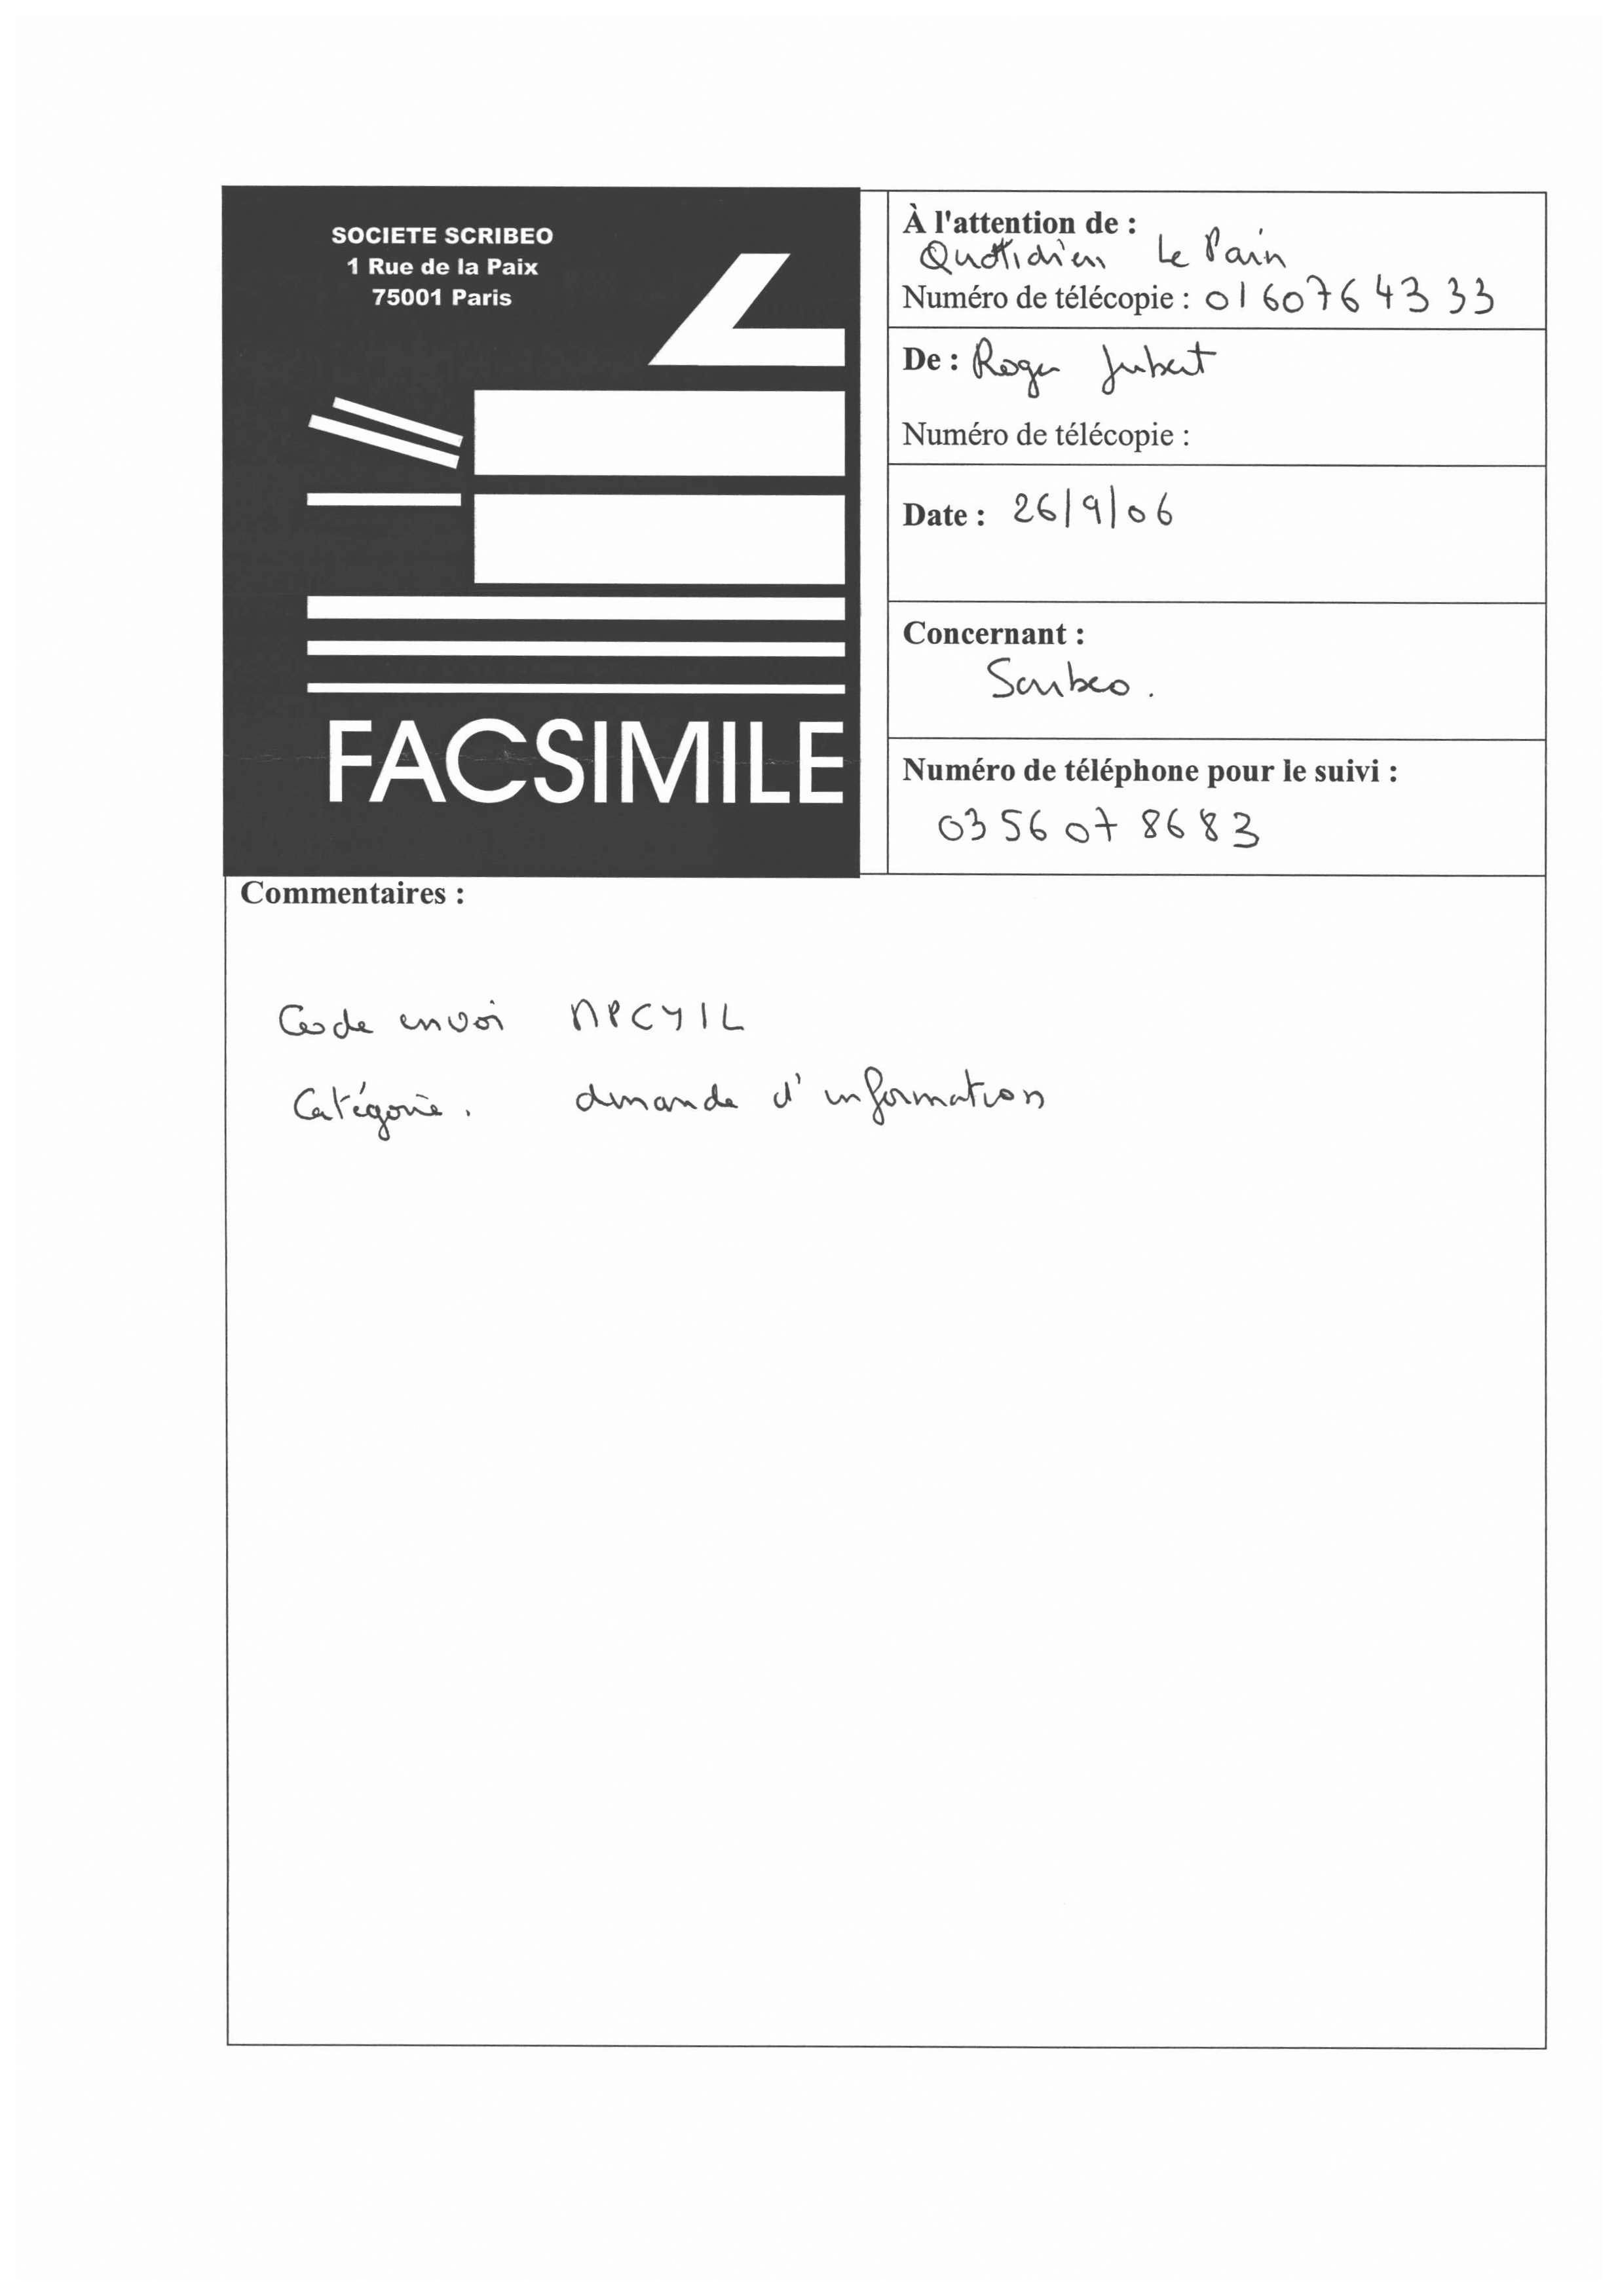 SOCIETE SCRIBEO
1 Rue de la Paix
75001 Paris
FACSIMILE
À l'attention de :
Quotidien Le Pain
Numéro de télécopie : 01 60 76 43 33
De : Roger Jubert
Numéro de télécopie :
Date : 26/9/06
Concernant :
Scribeo.
Numéro de téléphone pour le suivi :
03 56 07 86 83
Commentaires :
Code envoi NPCYIL
Catégorie. demande d'information